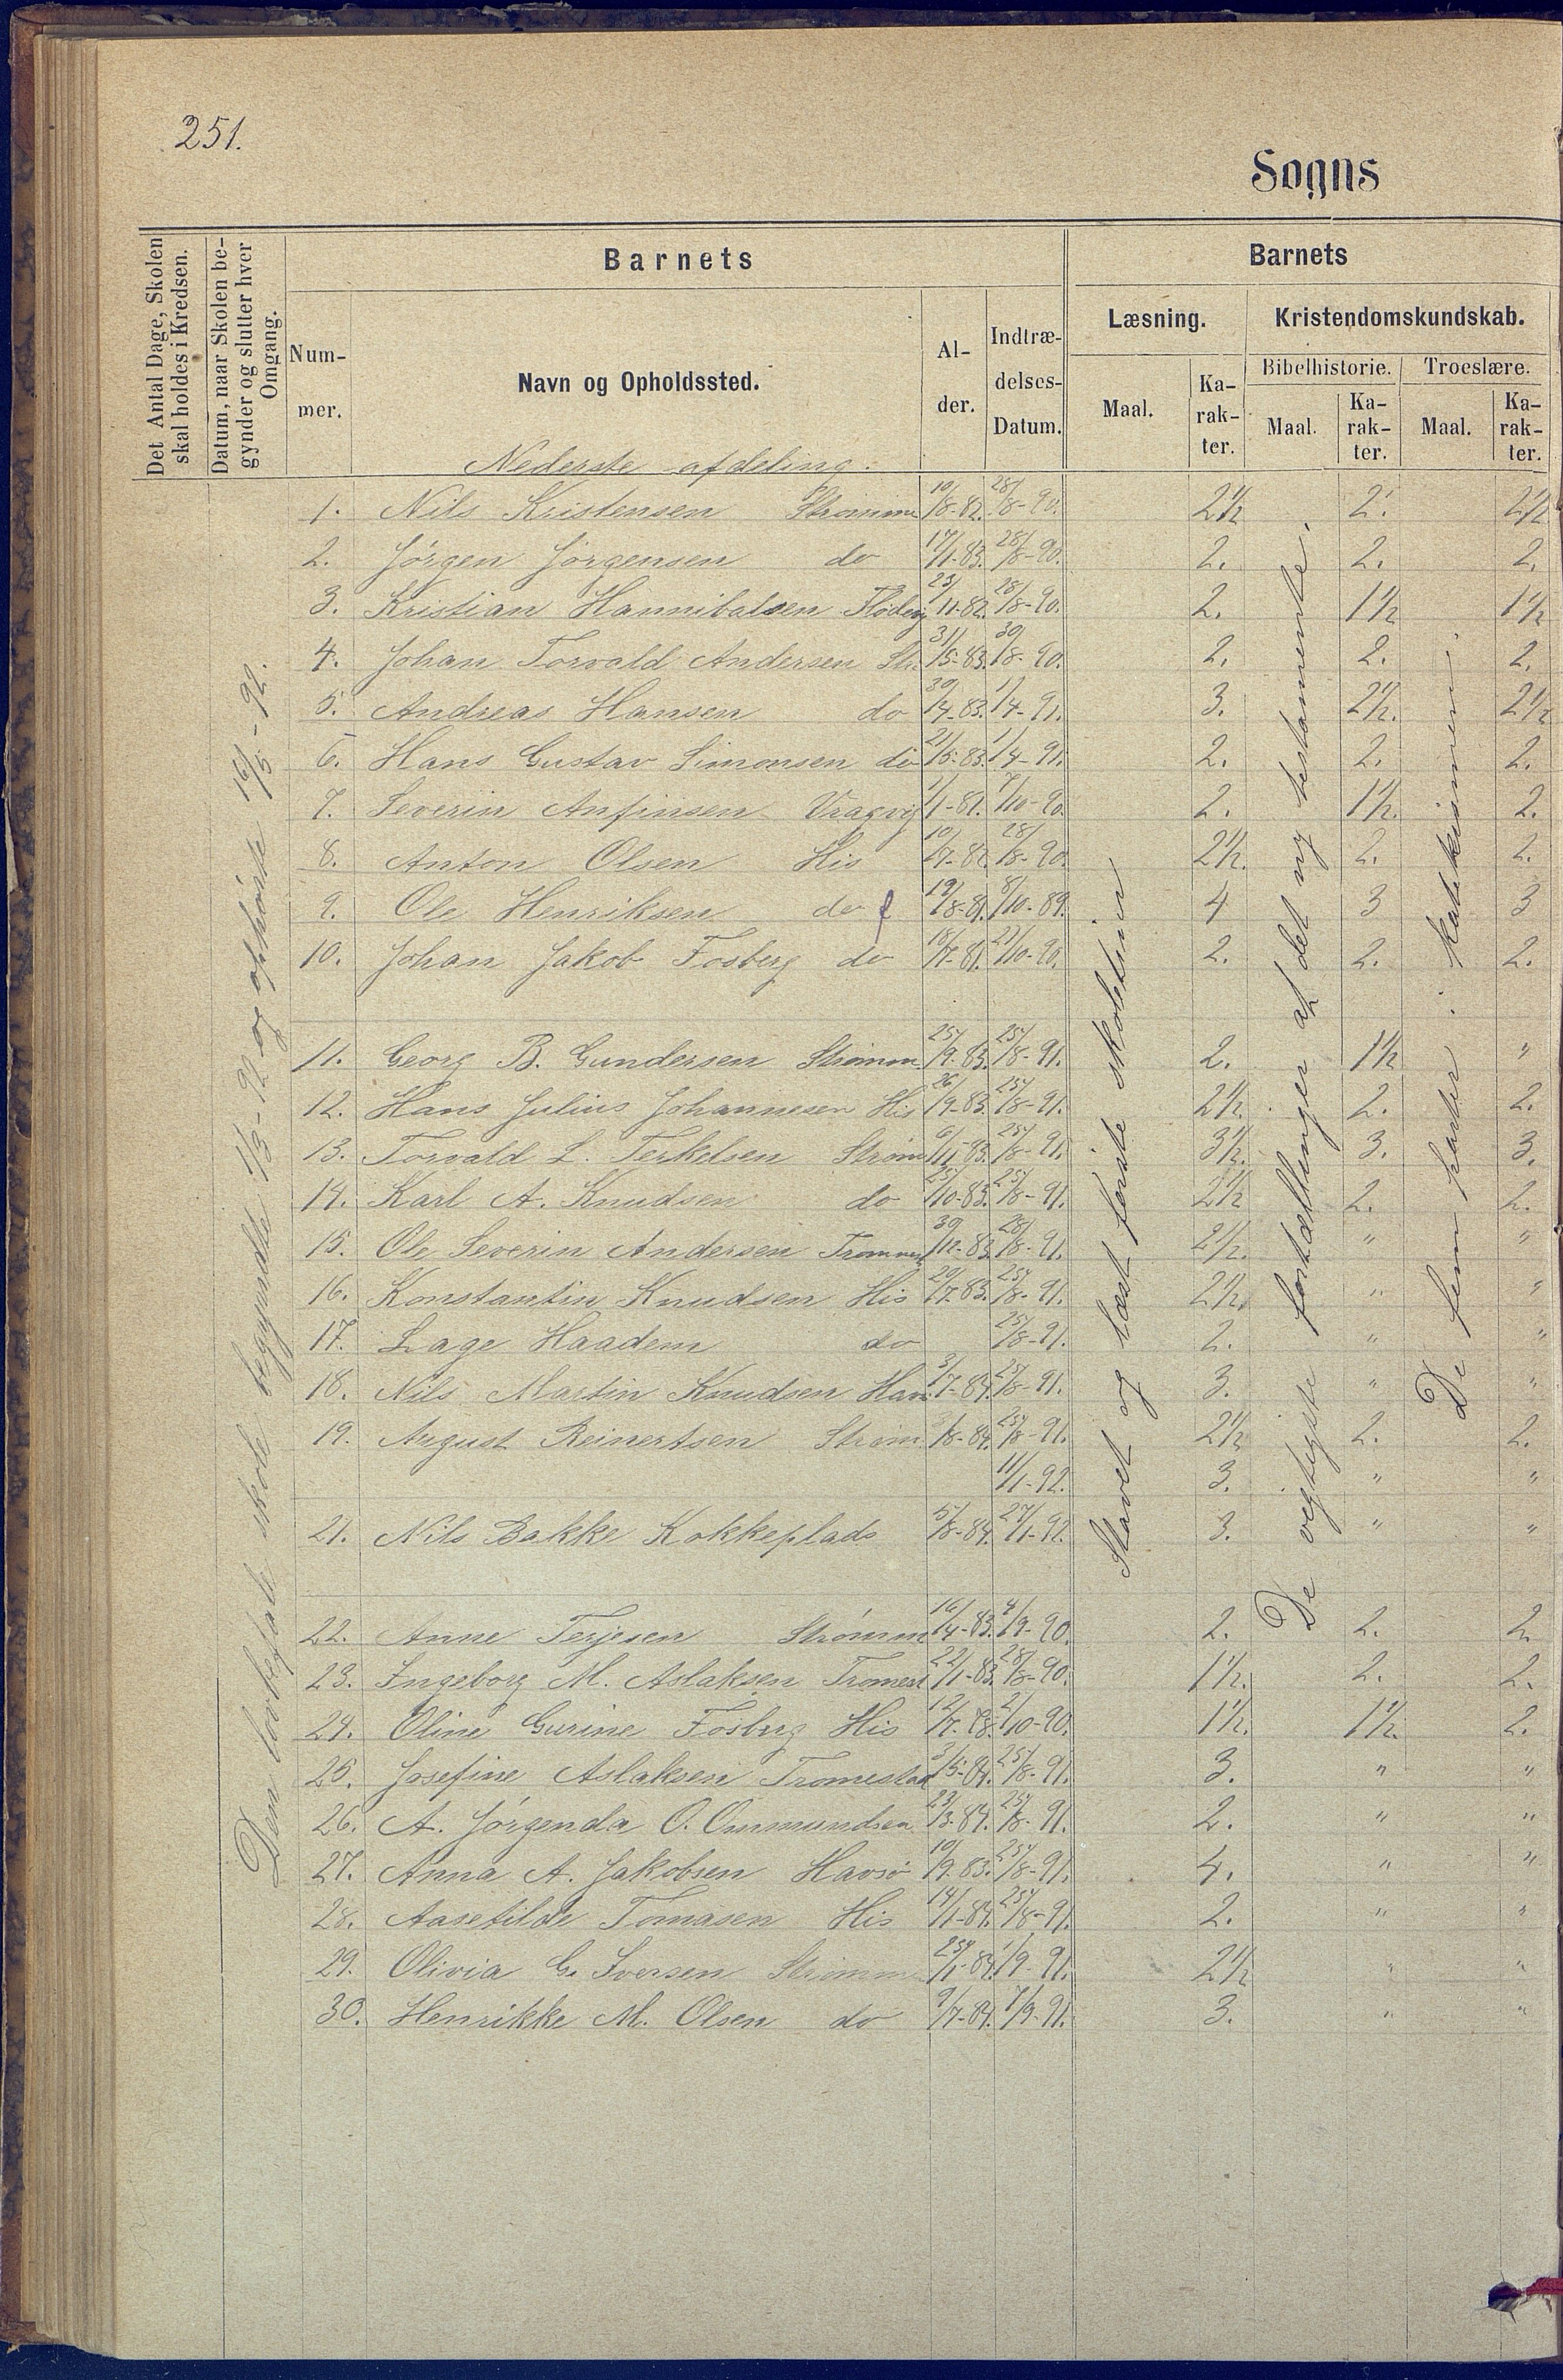 251.
Sogns
Det Antal Dage, Skolen
skal holdes i Kredsen.
Datum, naar Skolen be-
gynder og slutter hver
Omgang.
Barnets
Num-
mer.
Navn og Opholdssted.
Al-
der.
Indtræ-
delses-
Datum.
Barnets
Læsning.
Maal.
Ka-
rak-
ter.
Kristendomskundskab.
Bibelhistorie.
Maal.
Ka-
rak-
ter.
Troeslære.
Maal.
Ka-
rak-
ter.
Nederste afdeling.
Den lovbefalte skole begyndte 1/3-92 og ophørte 16/5-92.
Stavet og læst første skoletrin
De vigtigste fortællinger af det ny testamente.
De fem parter i katekismen
1. Nils Kristensen Strømme 10/8-82. 28/8-90. 2½ 2. 2½
2. Jörgen Jörgensen do 17/1-83. 28/8-90. 2. 2. 2.
3. Kristian Hannibalsen Flödevig 23/11-82. 28/8-90. 2. 1½ 1½
4. Johan Torvald Andersen Str. 31/5-83. 30/8-90. 2. 2. 2.
5. Andreas Hansen do 30/4-83. 1/4-91. 3. 2½. 2½
6. Hans Gustav Simonsen do 21/5-83. 1/4-91. 2. 2. 2.
7. Severin Anfinsen Vragvig 1/1-82. 7/10-90. 2. 1½. 2.
8. Anton Olsen His 10/7-82. 28/8-90. 2½. 2. 2.
9. Ole Henriksen do 19/8-81. 8/10-89. 4 3 3
10. Johan Jakob Fosberg do 18/7-81. 27/10-90. 2. 2. 2.
11. Georg B. Gundersen Strømm 25/9-83. 25/8-91. 2. 1½ "
12. Hans Julius Johannesen His 26/9-83. 25/8-91. 2½. 2. 2.
13. Torvald L. Terkelsen Strøm 6/11-83. 25/8-91. 3½. 3. 3.
14. Karl A. Knudsen do 25/10-83. 25/8-91. 2½ 2. 2.
15. Ole Severin Andersen Tromest 30/12-83. 28/8-91. 2½. " "
16. Konstantin Knudsen His 29/7-83. 25/8-91. 2½. " "
17. Lage Haadem do 25/8-91. 2. " "
18. Nils Martin Knudsen Hav. 3/7-84. 25/8-91. 3. " "
19. August Reinertsen Strøm /8-84. 25/8-91. 2½ 2. 2.
11/1-92. 3. " "
21. Nils Bakke Kokkeplads 5/8-84. 27/1-92. 3. " "
22. Anne Terjesen Strømm 16/4-83. 4/9-90. 2. 2. 2
23. Ingeborg M. Aslaksen Tromest 22/1-83. 28/8-90. 1½. 2. 2.
24. Oline Gurine Fosberg His 12/7- 2/10-90. 1½. 1½. 2.
25. Josefine Aslaksen Tromestad 3/5-84. 25/8-91. 3. " "
26. A. Jörgenda O. Ommundsen 23/3-84. 25/8-91. 2. " "
27. Anna A. Jakobsen Havsö 10/9-83. 25/8-91. 4. " "
28. Aasetilde Tomasen His 14/1-84. 25/8-91. 2. " "
29. Olivia G. Iversen Strømm 25/1-84. 1/9-91. 2½ " "
30. Henrikke M. Olsen do 9/7-84. 7/9-91. 3. " "